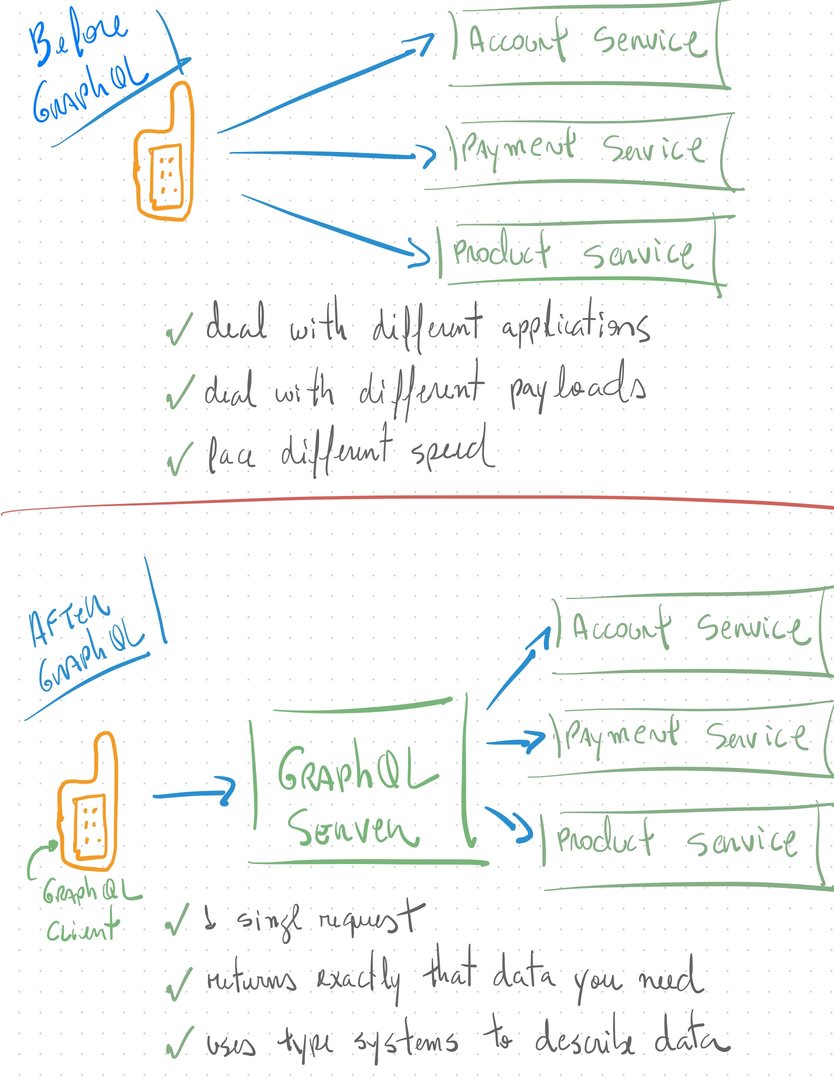 Before
GraphQL
Account Service
Payment Service
Product Service
deal with different applications
deal with different payloads
face different speed
After
GraphQL
Account Service
Payment Service
GraphQL
Server
Product Service
GraphQL
Client
1 singl request
returns exactly that data you need
uses type systems to describe data